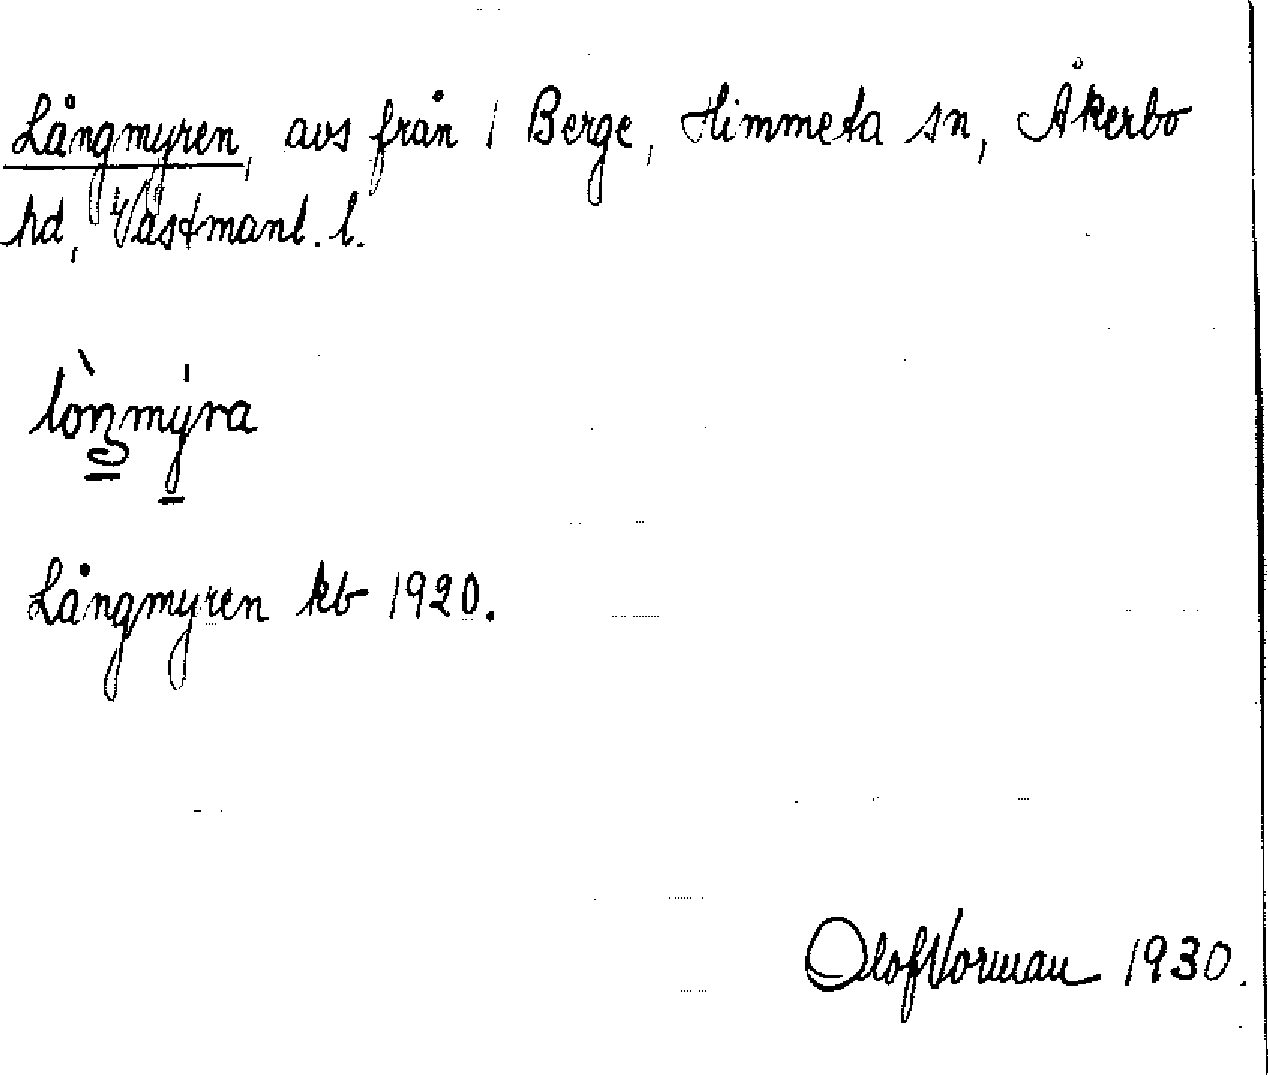 Långmyren, avs från 1 Berge, Himmeta sn, Åkerbo
hd, Västmanl. l.
lòŋmýra
Långmyren kb 1920.
Olof Norman 1930.